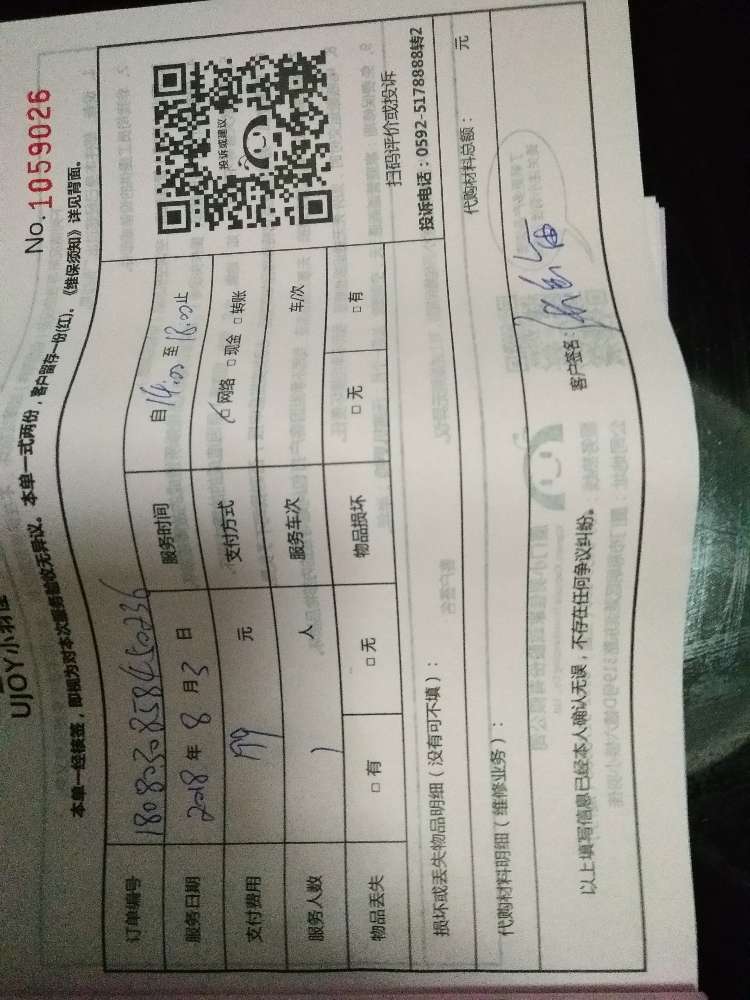 UJOY小羽佳
No. 1059026
本单一经核签，即视为对本次服务验收无异议。 本单一式两份，客户留存一份(红)。《维保须知》详见背面。
订单编号
服务日期 2018 年 8 月 3 日 服务时间 自 14:00 至 18:00 止
支付费用 199 元 支付方式 □ 网络 □ 现金 □ 转账
服务人数 1 人 服务车次 车/次
物品丢失 □ 有 □ 无 物品损坏 □ 无 □ 有
投诉或建议
扫码评价或投诉
投诉电话：0592-5178888转2
损坏或丢失物品明细（没有可不填）：
代购材料明细（维修业务）： 代购材料总额： 元
以上填写信息已经本人确认无误，不存在任何争议纠纷。 客户签名：